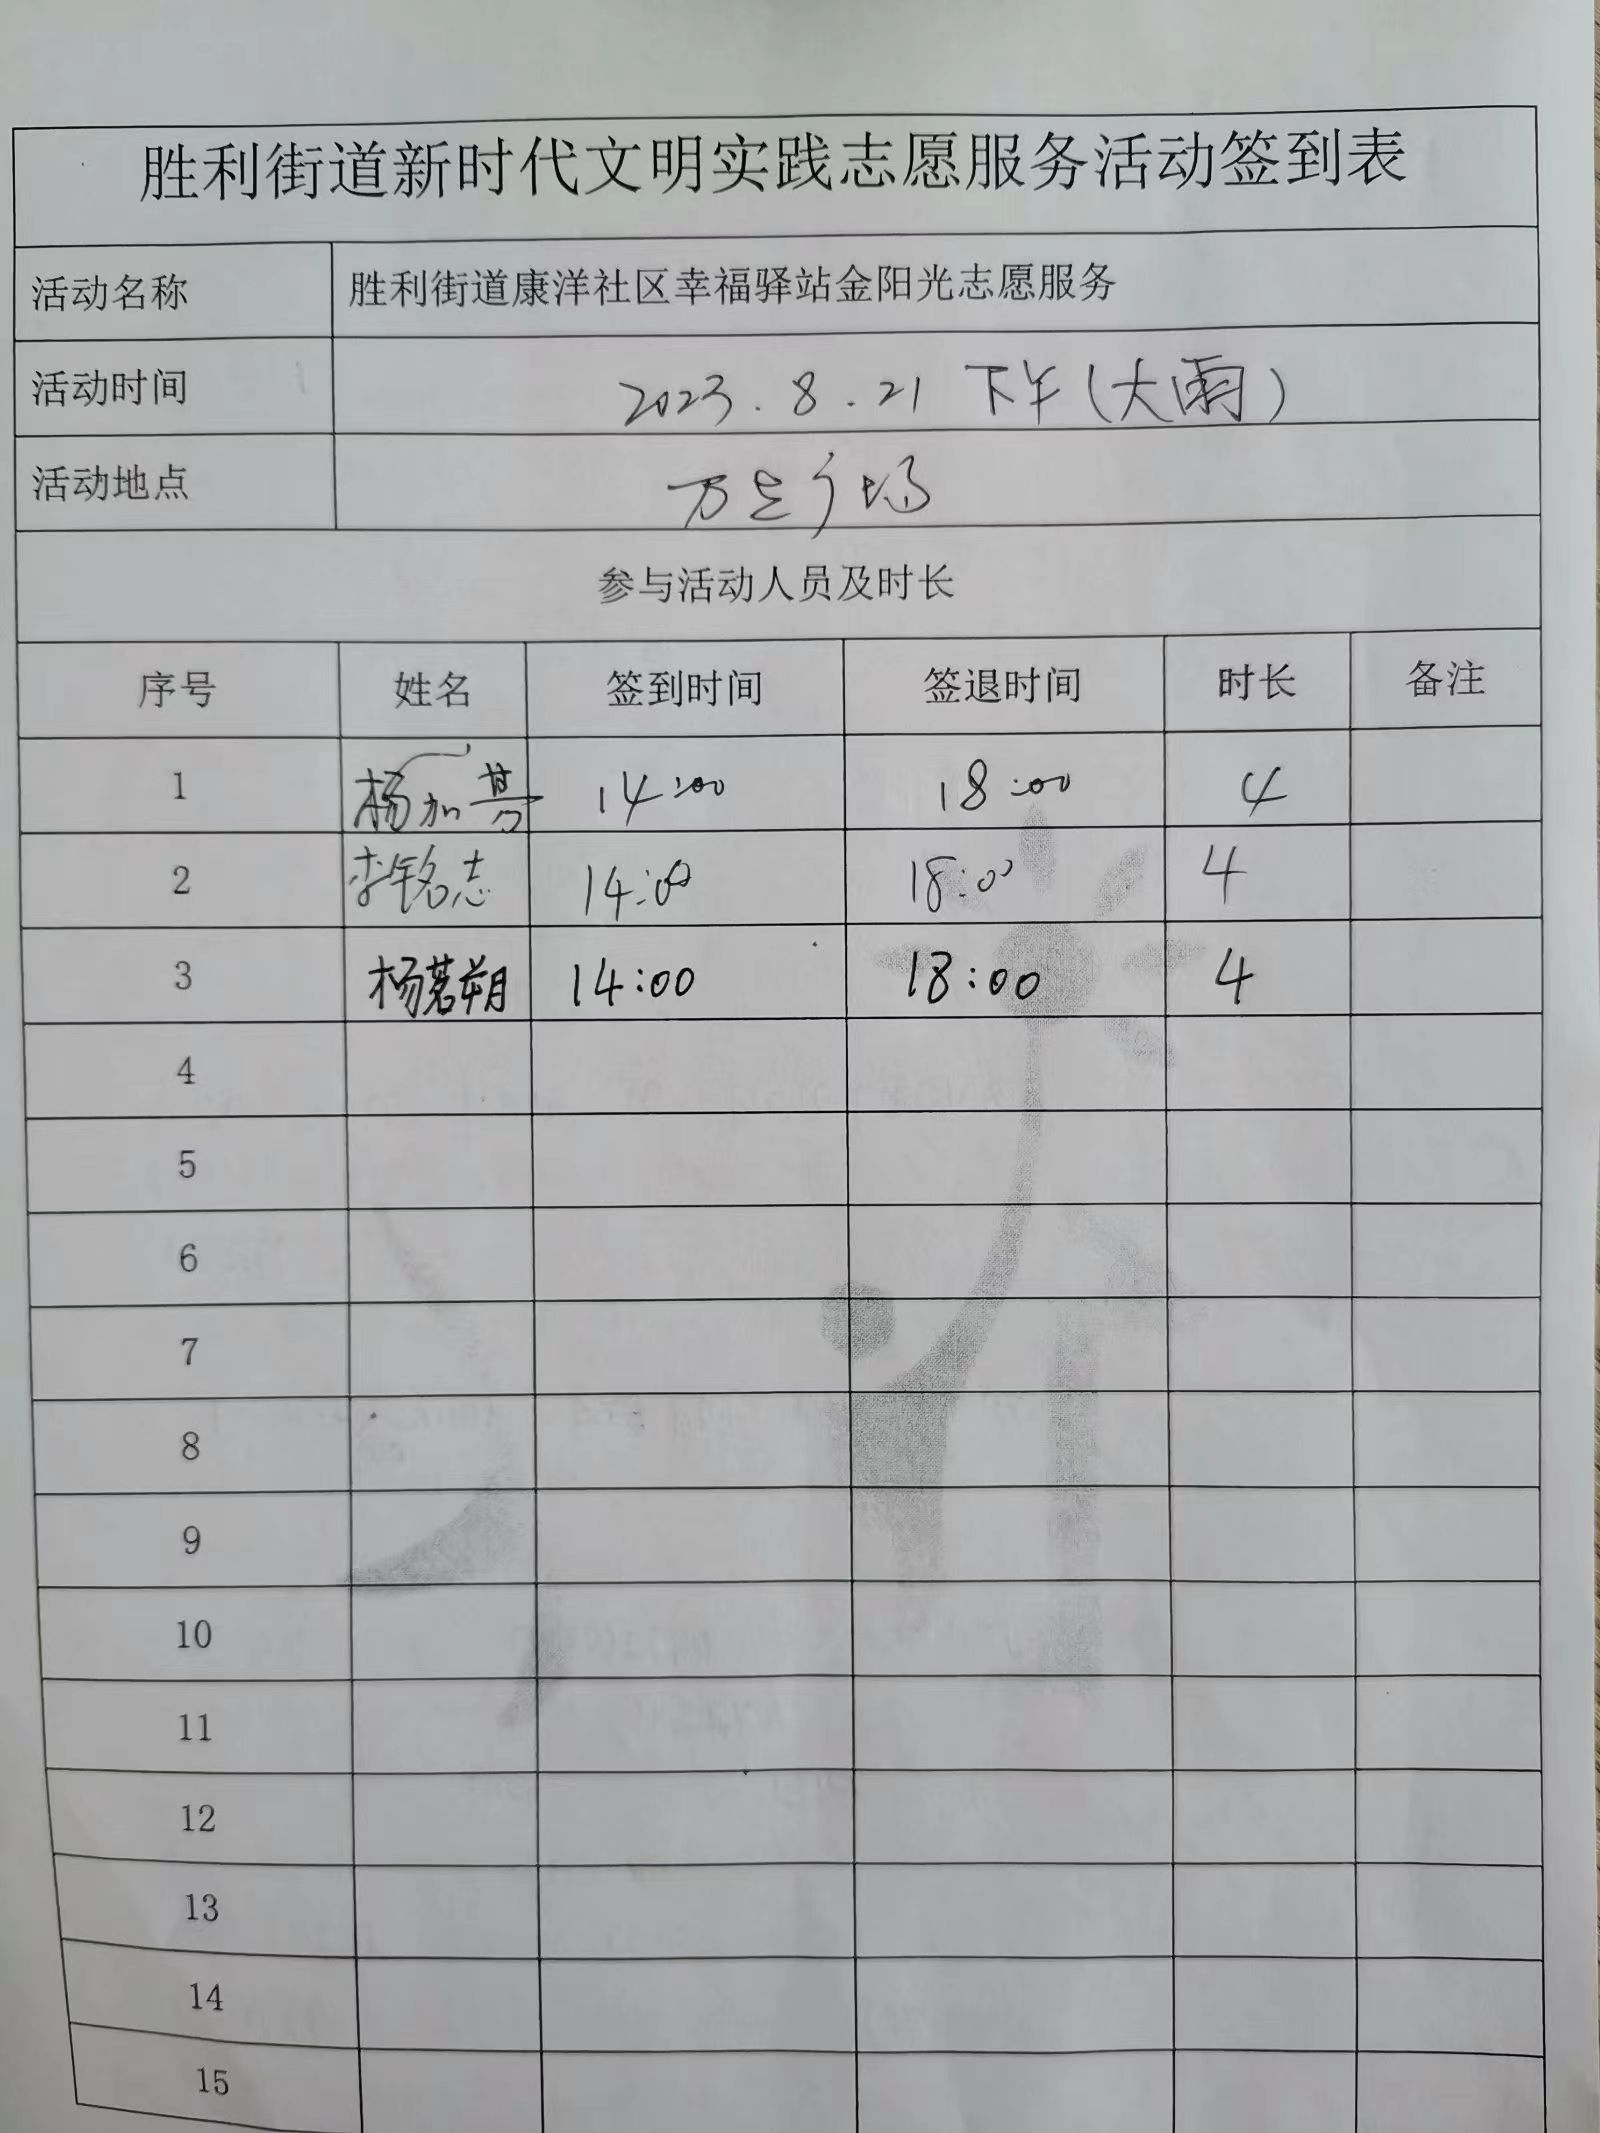 胜利街道新时代文明实践志愿服务活动签到表
活动名称 胜利街道康洋社区幸福驿站金阳光志愿服务
活动时间 2023.8.21 下午(大雨)
活动地点 广场
参与活动人员及时长
序号 姓名 签到时间 签退时间 时长 备注
1 杨加 14:00 18:00 4
2 李铭志 14:00 18:00 4
3 杨茗朔 14:00 18:00 4
4
5
6
7
8
9
10
11
12
13
14
15